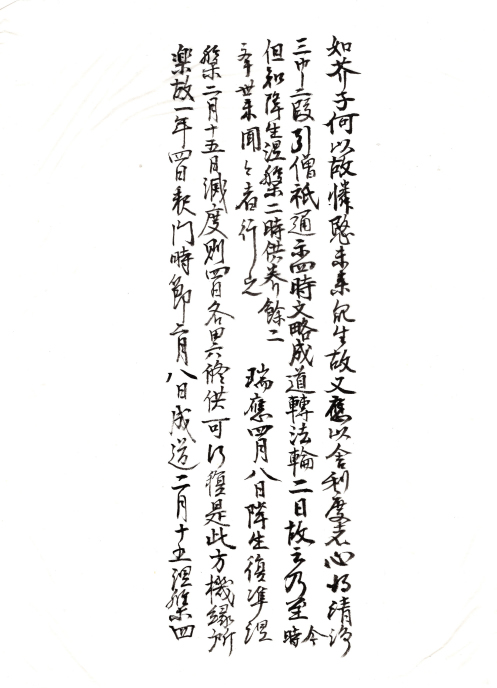 如芥子何以故憐愍未来衆生故又應以舎利度者心得清浄
三中二段引僧祇通示四時文略成道轉法輪二日故云乃至今時
但知降生涅槃二時供養餘二
来世来聞之者行之 瑞應四月八日降生復準涅
槃二月十五日滅度則四日各異修供可行須是此方機緣所
樂故一年四日表門時節二月八日成道二月十五涅槃四